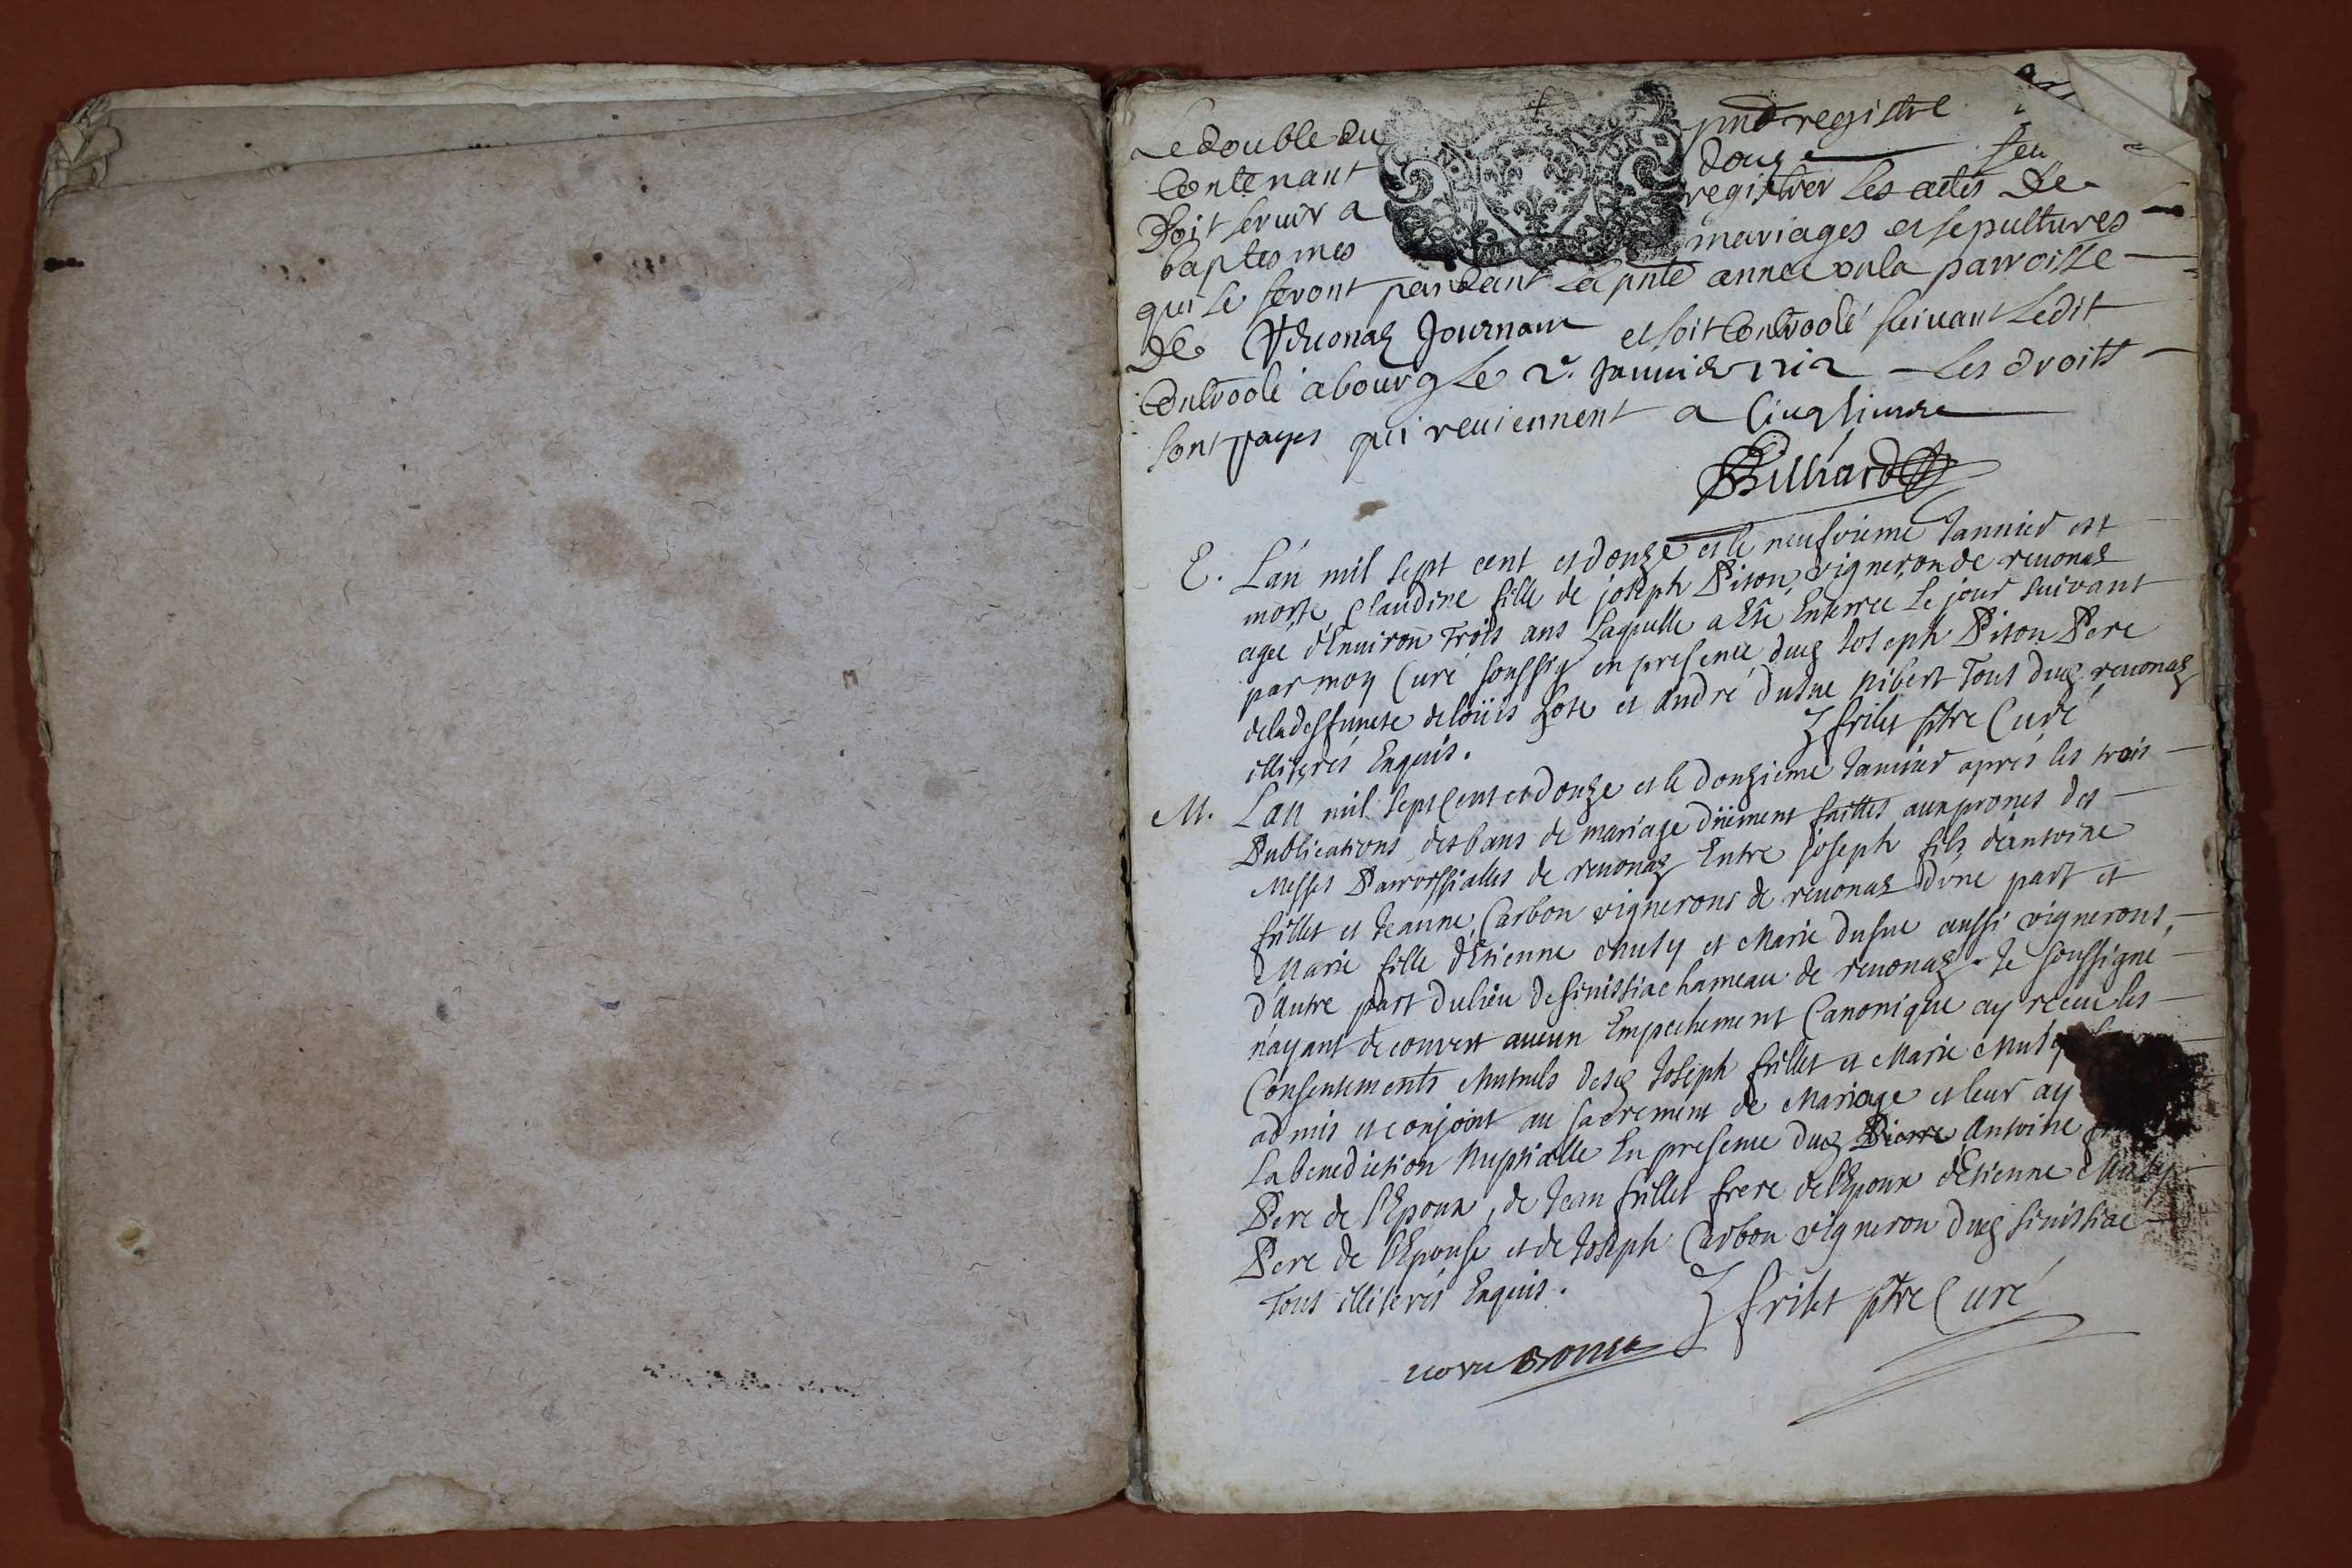 Le double du pnt registre
Contenant douze feu
Doit servir a registrer les actes de
baptesmes mariages et sepultures
qui se feront pendant la pnte année en la parroisse
De Revonaz Journans et soit Controolé suivant ledit
Controolé a bourg le 2e. Janvier 1712 les droits
sont payes qui reviennent a Cinq livres
Billiard
E. L'an mil sept cent et douze et le neufvieme Janvier est
morte Claudine fille de joseph Piton vigneron de revonas
agée d'Environ Trois ans Laquelle a Esté Enterrée le jour suivant
par moy Curé soussigé en presence dud Joseph Piton Pere
de la deffuncte de loüis Gote et André Dusue Tous dud revonas
illiterés Enquis. J frilet ptre Curé
M. L'an mil sept Cent et douze et le douzieme Janvier aprés les trois
Publications des bans de mariage düement faittes aux prones des
Messes Parroissialles de revonaz Entre joseph fils d'antoine
frillet et Jeanne Carbon vignerons de revonas d'vne part et
Marie fille d'Etienne Muty et Marie Dusue aussi vignerons
d'Autre part du lieu de sinissiac hameau de revonaz. Je soussigné
n'ayant decouvert aucun Empechement Canonique ay receu les
Consentements Mutuels desd Joseph frillet et Marie Muty
admis et conjoint au sacrement de Mariage et leur ay
La benediction Nuptialle En presence dud Pierre Antoine
Pere de l'Epoux, de Jean frillet frere de l'Epoux d'Etienne Muty
Pere de l'Epouse et de Joseph Carbon vigneron dud sinissiac
Tous illiterés Enquis. J frilet ptre Curé